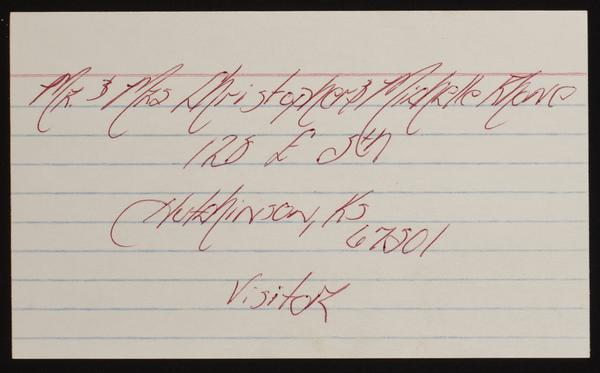 Mr. & Mrs Christopher & Michelle Rhone
128 E 5th
Hutchinson, Ks
67501
Visitor